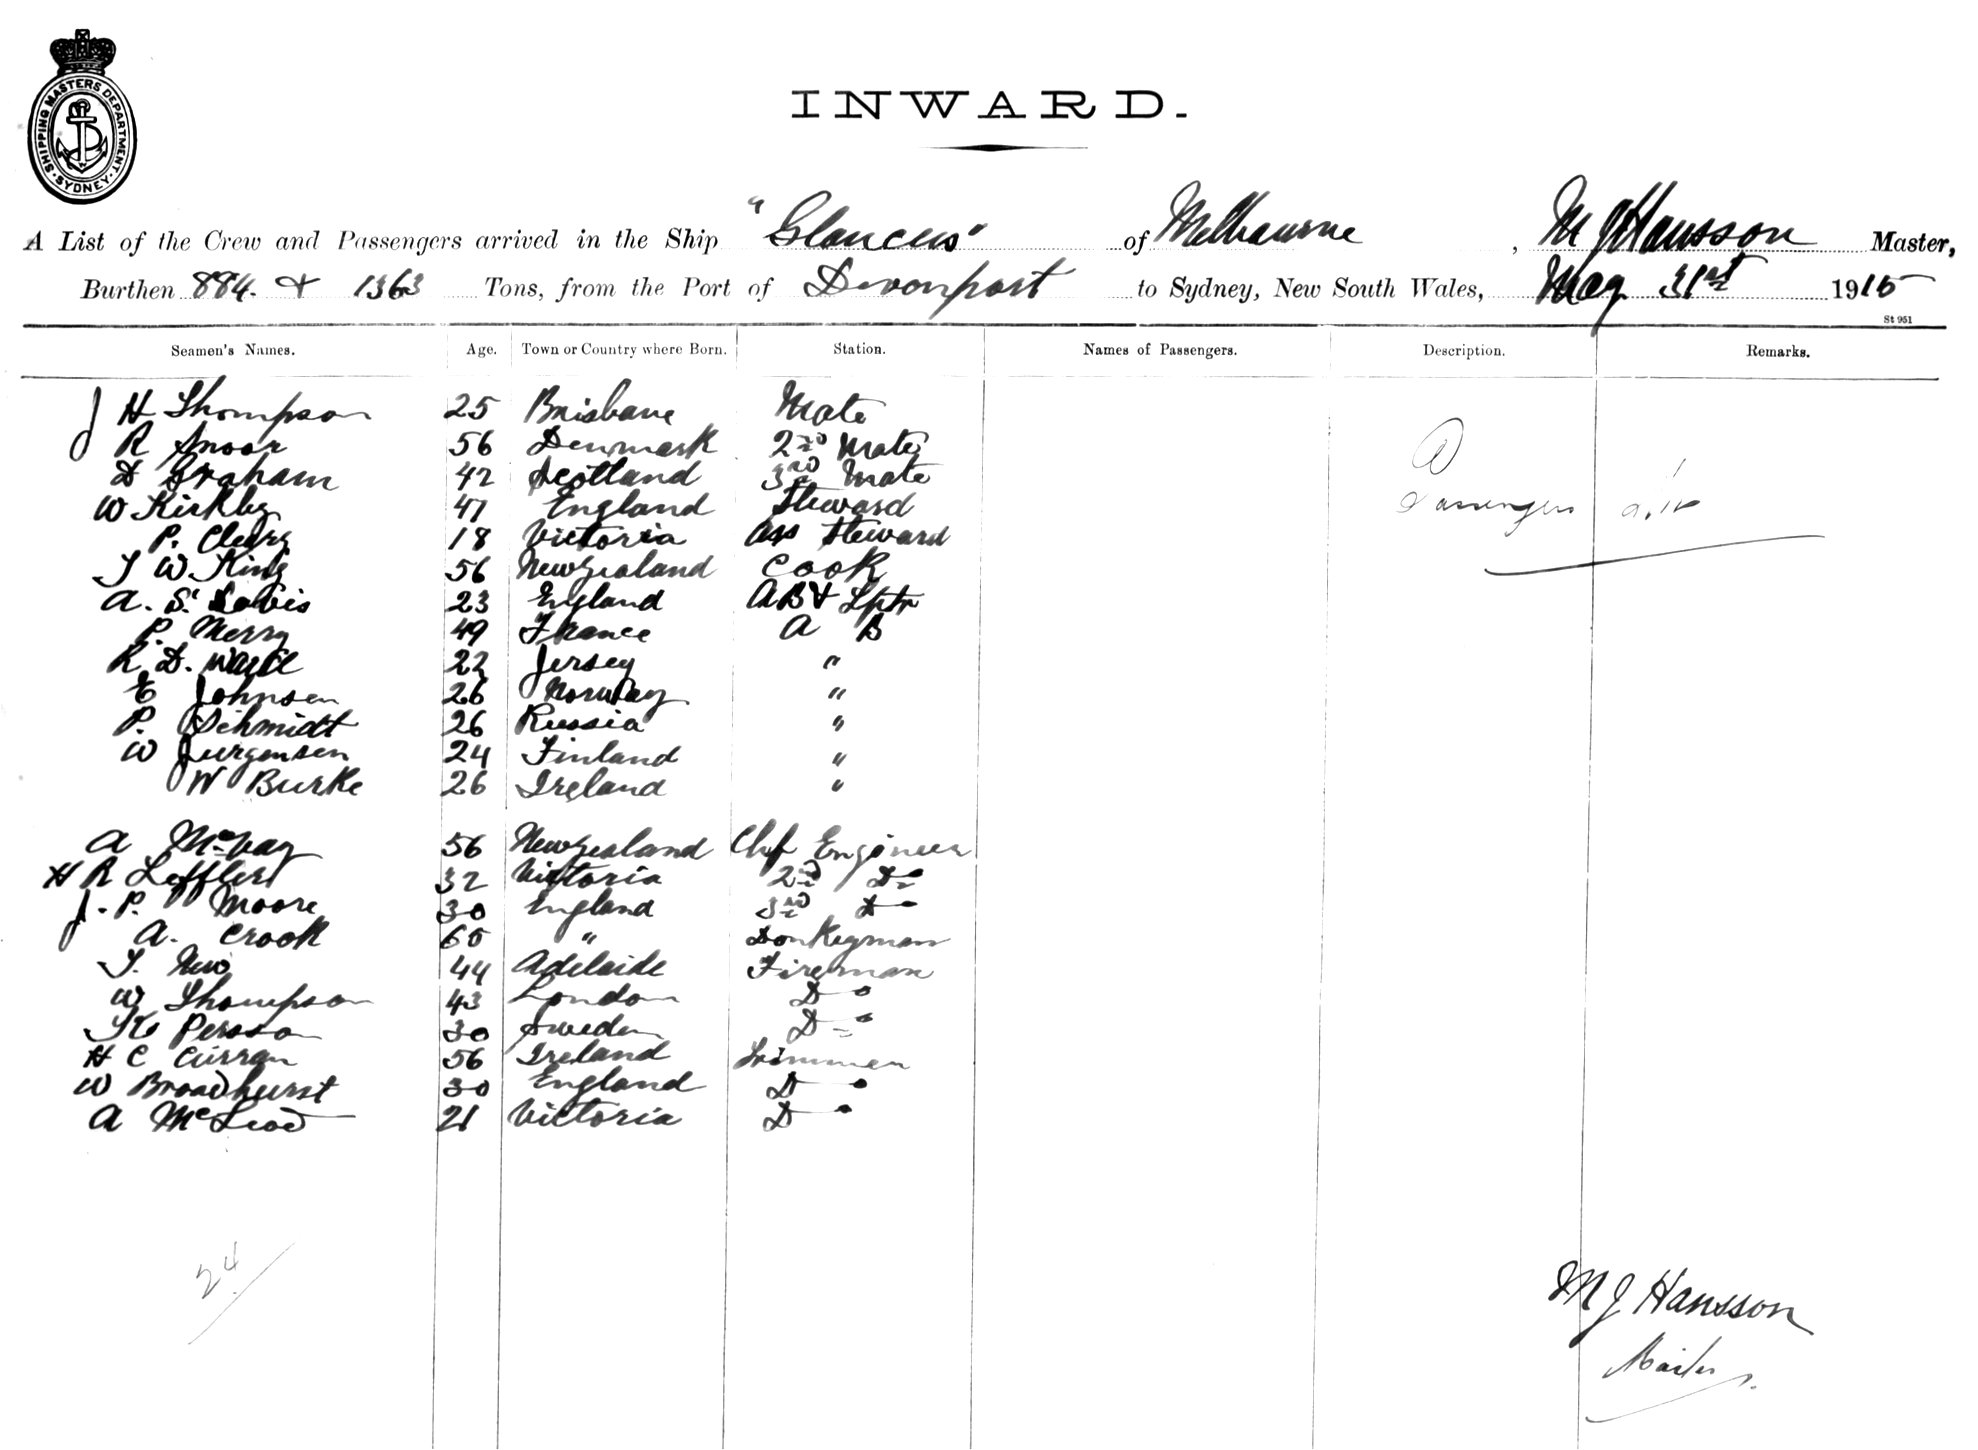 SHIPPING MASTERS DEPARTMENT. SYDNEY.
INWARD.
A List of the Crew and Passengers arrived in the Ship "Glaucus" of Melbourne, M J Hansson Master,
Burthen 884. & 1363 Tons, from the Port of Devonport to Sydney, New South Wales, May 31st 1915
St 951
Seamen's Names. Age. Town or Country where Born. Station. Names of Passengers. Description. Remarks.
J H Thompson 25 Brisbane Mate
R Snoor 56 Denmark 2nd Mate
D Graham 42 Scotland 3rd Mate
W Kirkby 47 England Steward
P. Cleary 18 Victoria Ass Steward
T W. King 56 New Zealand Cook
A. S. Davis 23 England AB & Lptr
P. Merry 49 France A B
R. D. 22 Jersey "
E Johnsen 26 Norway "
P. Schmidt 26 Russia "
W Jurgensen 24 Finland "
W Burke 26 Ireland "
Passengers nil
A McVay 56 New Zealand Chf Engineer
H R Leffler 32 Victoria 2nd Do
J. P. Moore 30 England 3rd Do
A. Crook 60 " Donkeyman
T. New 44 Adelaide Fireman
W Thompson 43 London Do
K Persson 30 Sweden Do
H C Curran 56 Ireland Trimmer
W Broadhurst 30 England Do
A McLeod 21 Victoria Do
24
M J Hansson
Master